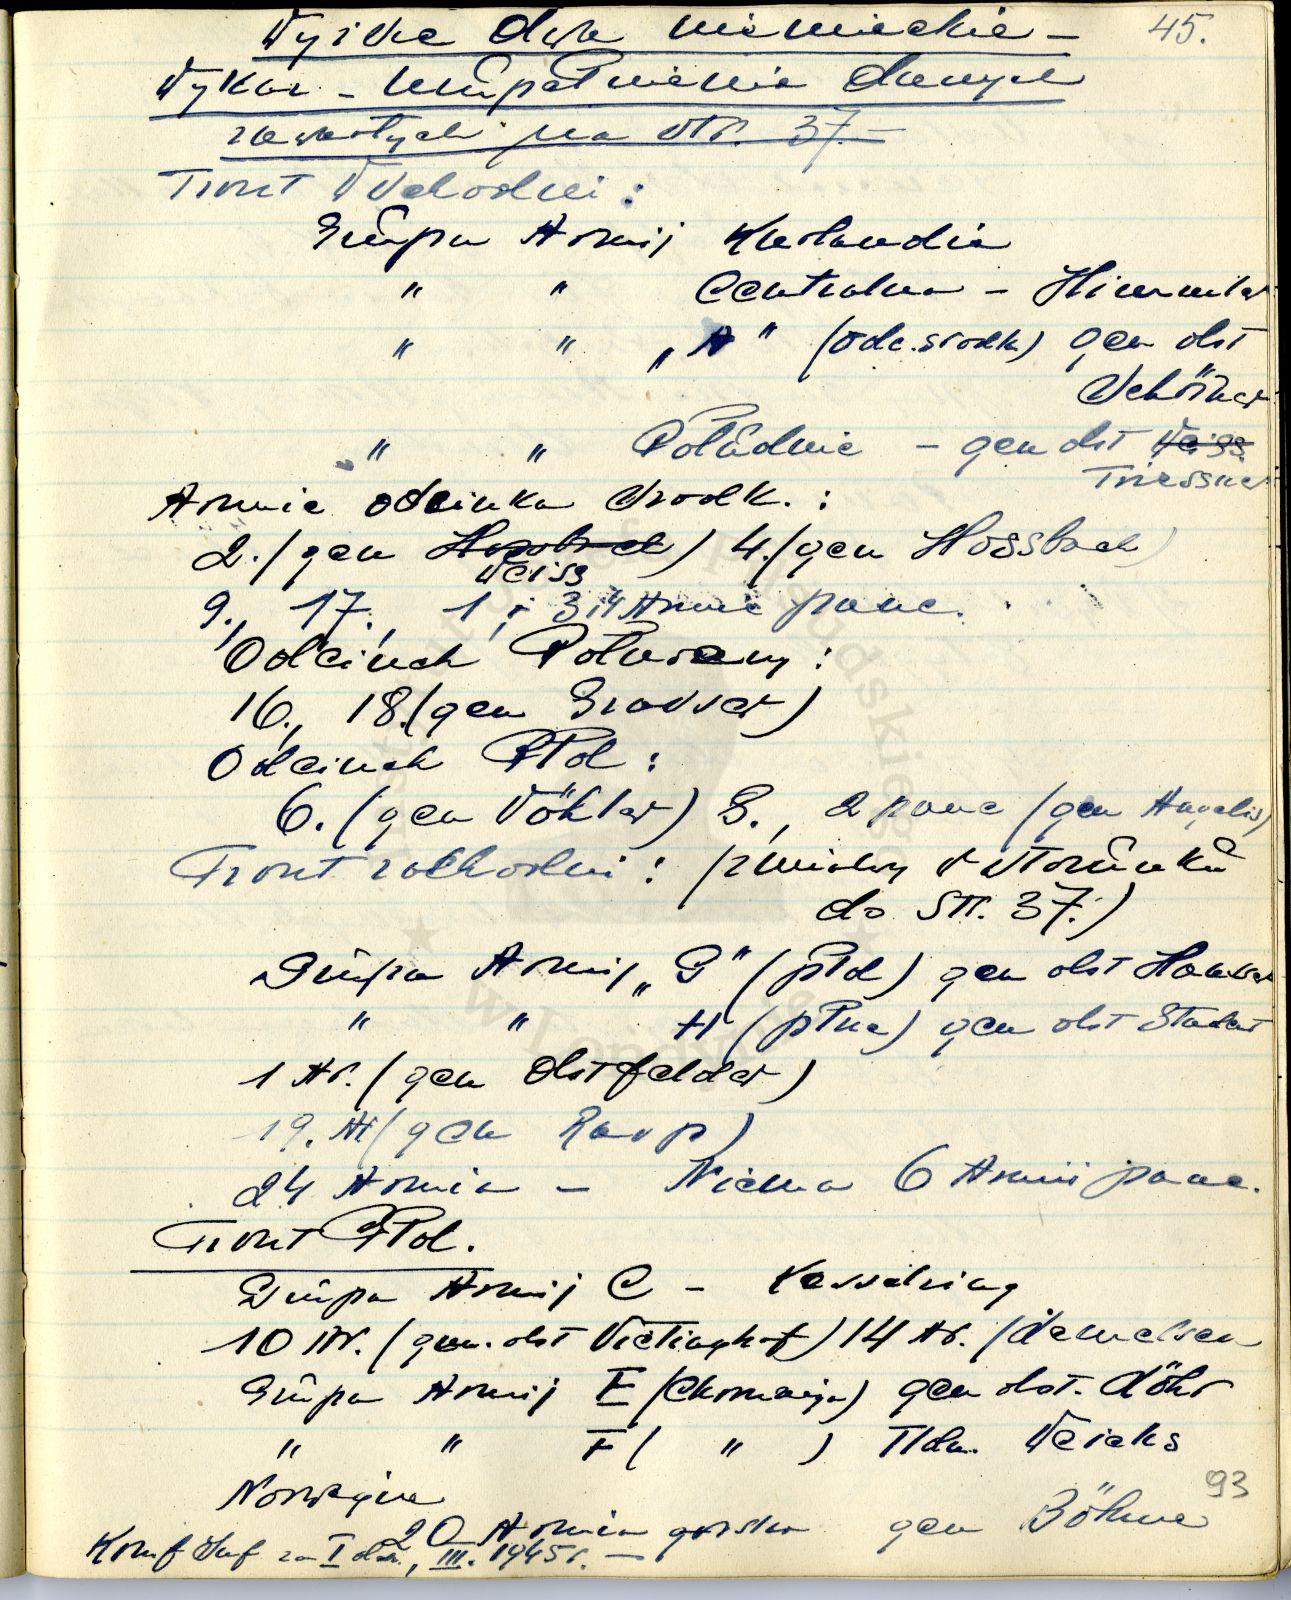 45.
Wyższe dwa niemieckie -
Wykaz - uzupełnienie danych
zawartych na str. 37.-
Front Wschodni:
Grupa Armij Kurlandia
" " Centralna - Himmler
" " „A" (odc. srodk) gen obst
Schörner
" " Południe - gen obst Weiss
Friessner
Armie odcinka srodk.:
2. (gen Hossbach) 4. (gen Hossbach)
Weiss
9., 17., 1, i 3 i 4 Armie panc.
Odcinek Kurlandzki:
16., 18. (gen Grasser)
Odcinek Płd:
6. (gen Wöhler) 8., 2 panc (gen Angelis)
Front zachodni: (zmiany w stosunku
do str. 37.)
Grupa Armij „G" (płd) gen obst Hausser
" " H (płnc) gen obst Student
1 Ar. (gen Obstfelder)
19. Ar (gen Rasp)
24 Armia - Niema 6 Armii panc.
Front Płd.
Grupa Armij C - Kesselring
10 Ar. (gen. obst Vietinghof) 14 Ar. (Lemelsen
Grupa Armij E (Chorwacja) gen obst. Löhr
" " F ( " ) Fldm. Weichs
Norwegia
20 Armia górska gen Böhme
93
Kom. Inf za I dek., III. 1945r. -